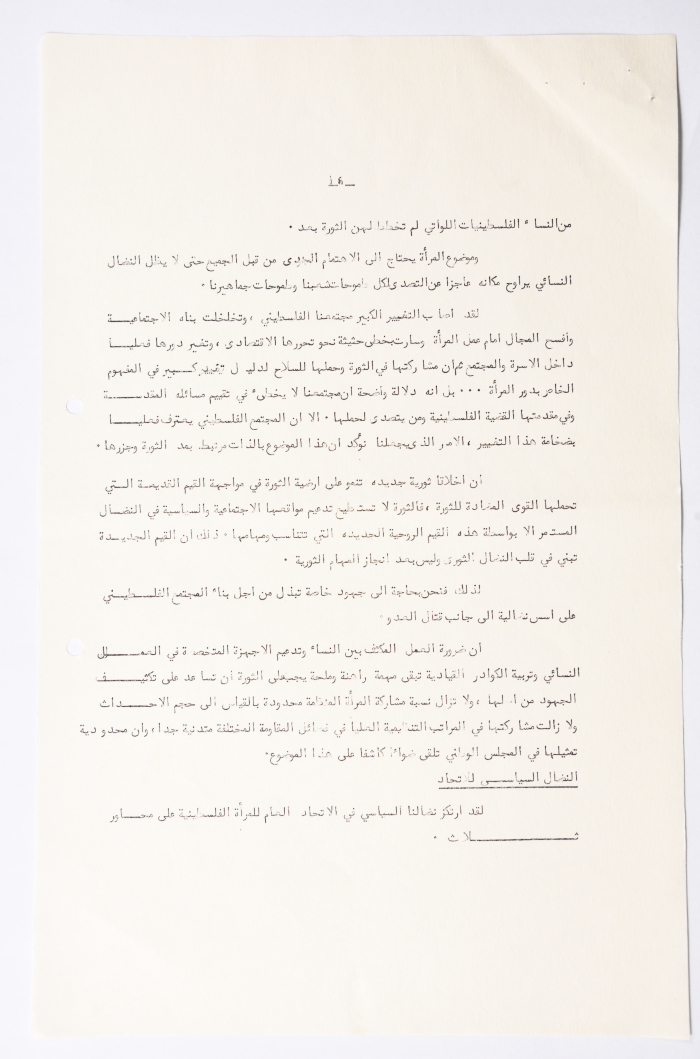 من النساء الفلسطينيات اللواتي لم تخطط لهن الثورة بعد .
وموضوع المرأة يحتاج الى الاهتمام الجدي من قبل الجميع حتى لا يظل النضال
النسائي يراوح مكانه عاجزا عن التصدى لكل طموحات شعبنا وطموحات جماهيرنا .
لقد اصاب التغيير الكبير مجتمعنا الفلسطيني ، وتخلخلت بناه الاجتماعيـــــة
وافسح المجال امام عمل المرأة وسارت بخطى حثيثة نحو تحررها الاقتصادى ، وتغير دورها فعليـــا
داخل الاسرة والمجتمع ثم ان مشاركتها في الثورة وحملها للسلاح لدليل تغيير كـــبير في المفهوم
الخاص بدور المرأة ٠٠٠ بل انه دلالة واضحة ان مجتمعنا لا يخطىء في تقييم مسائله المقدســـة
وفي مقدمتها القضية الفلسطينية ومن يتصدى لحملها . الا ان المجتمع الفلسطيني يعترف فعليـــا
بضخامة هذا التغيير ، الامر الذى يجعلنا نؤكد ان هذا الموضوع بالذات مرتبط بمد الثورة وجزرها .
ان اخلاقا ثورية جديده تنمو على ارضية الثورة في مواجهة القيم القديمة الـــتي
تحملها القوى المضادة للثورة ، فالثورة لا تستطيع تدعيم مواقعها الاجتماعية والسياسية في النضـــال
المستمر الا بواسطة هذه القيم الروحية الجديده التي تتناسب ومهامها . ذلك ان القيم الجديــدة
تبنى في قلب النضال الثورى وليس بعد انجاز المهام الثورية .
لذلك فنحن بحاجة الى جهود خاصة تبذل من اجل بناء المجتمع الفلســـطيـــني
على اسس نضالية الى جانب قتال العدو .
ان ضرورة العمل المكثف بين النساء وتدعيم الاجهزة المتخصصة في العمـــــل
النسائي وتربية الكوادر القيادية تبقى مهمة راهنة وملحة يجب على الثورة ان تساعد على تكثيـــف
الجهود من اجلها ، ولا تزال نسبة مشاركة المرأة المنظمة محدودة بالقياس الى حجم الاحـــداث
ولا زالت مشاركتها في المراتب التنظيمية العليا في فصائل المقاومة المختلفة متدنية جدا ، وان محدودية
تمثيلها في المجلس الوطني تلقى ضوءا كاشفا على هذا الموضوع .
النضال السياســـي للاتحاد
لقد ارتكز نضالنا السياسي في الاتحاد العام للمرأة الفلسطينية على محـــاور
ثـــــــــــــــلاث .